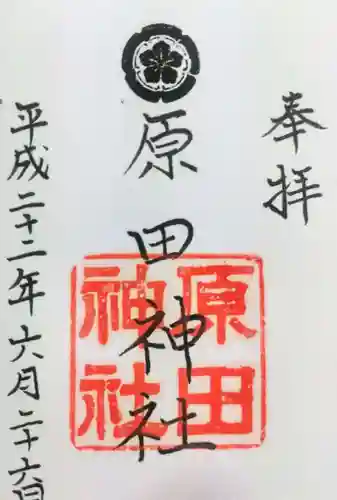 奉拝
原田神社
原田
神社
平成二十二年六月二十六日